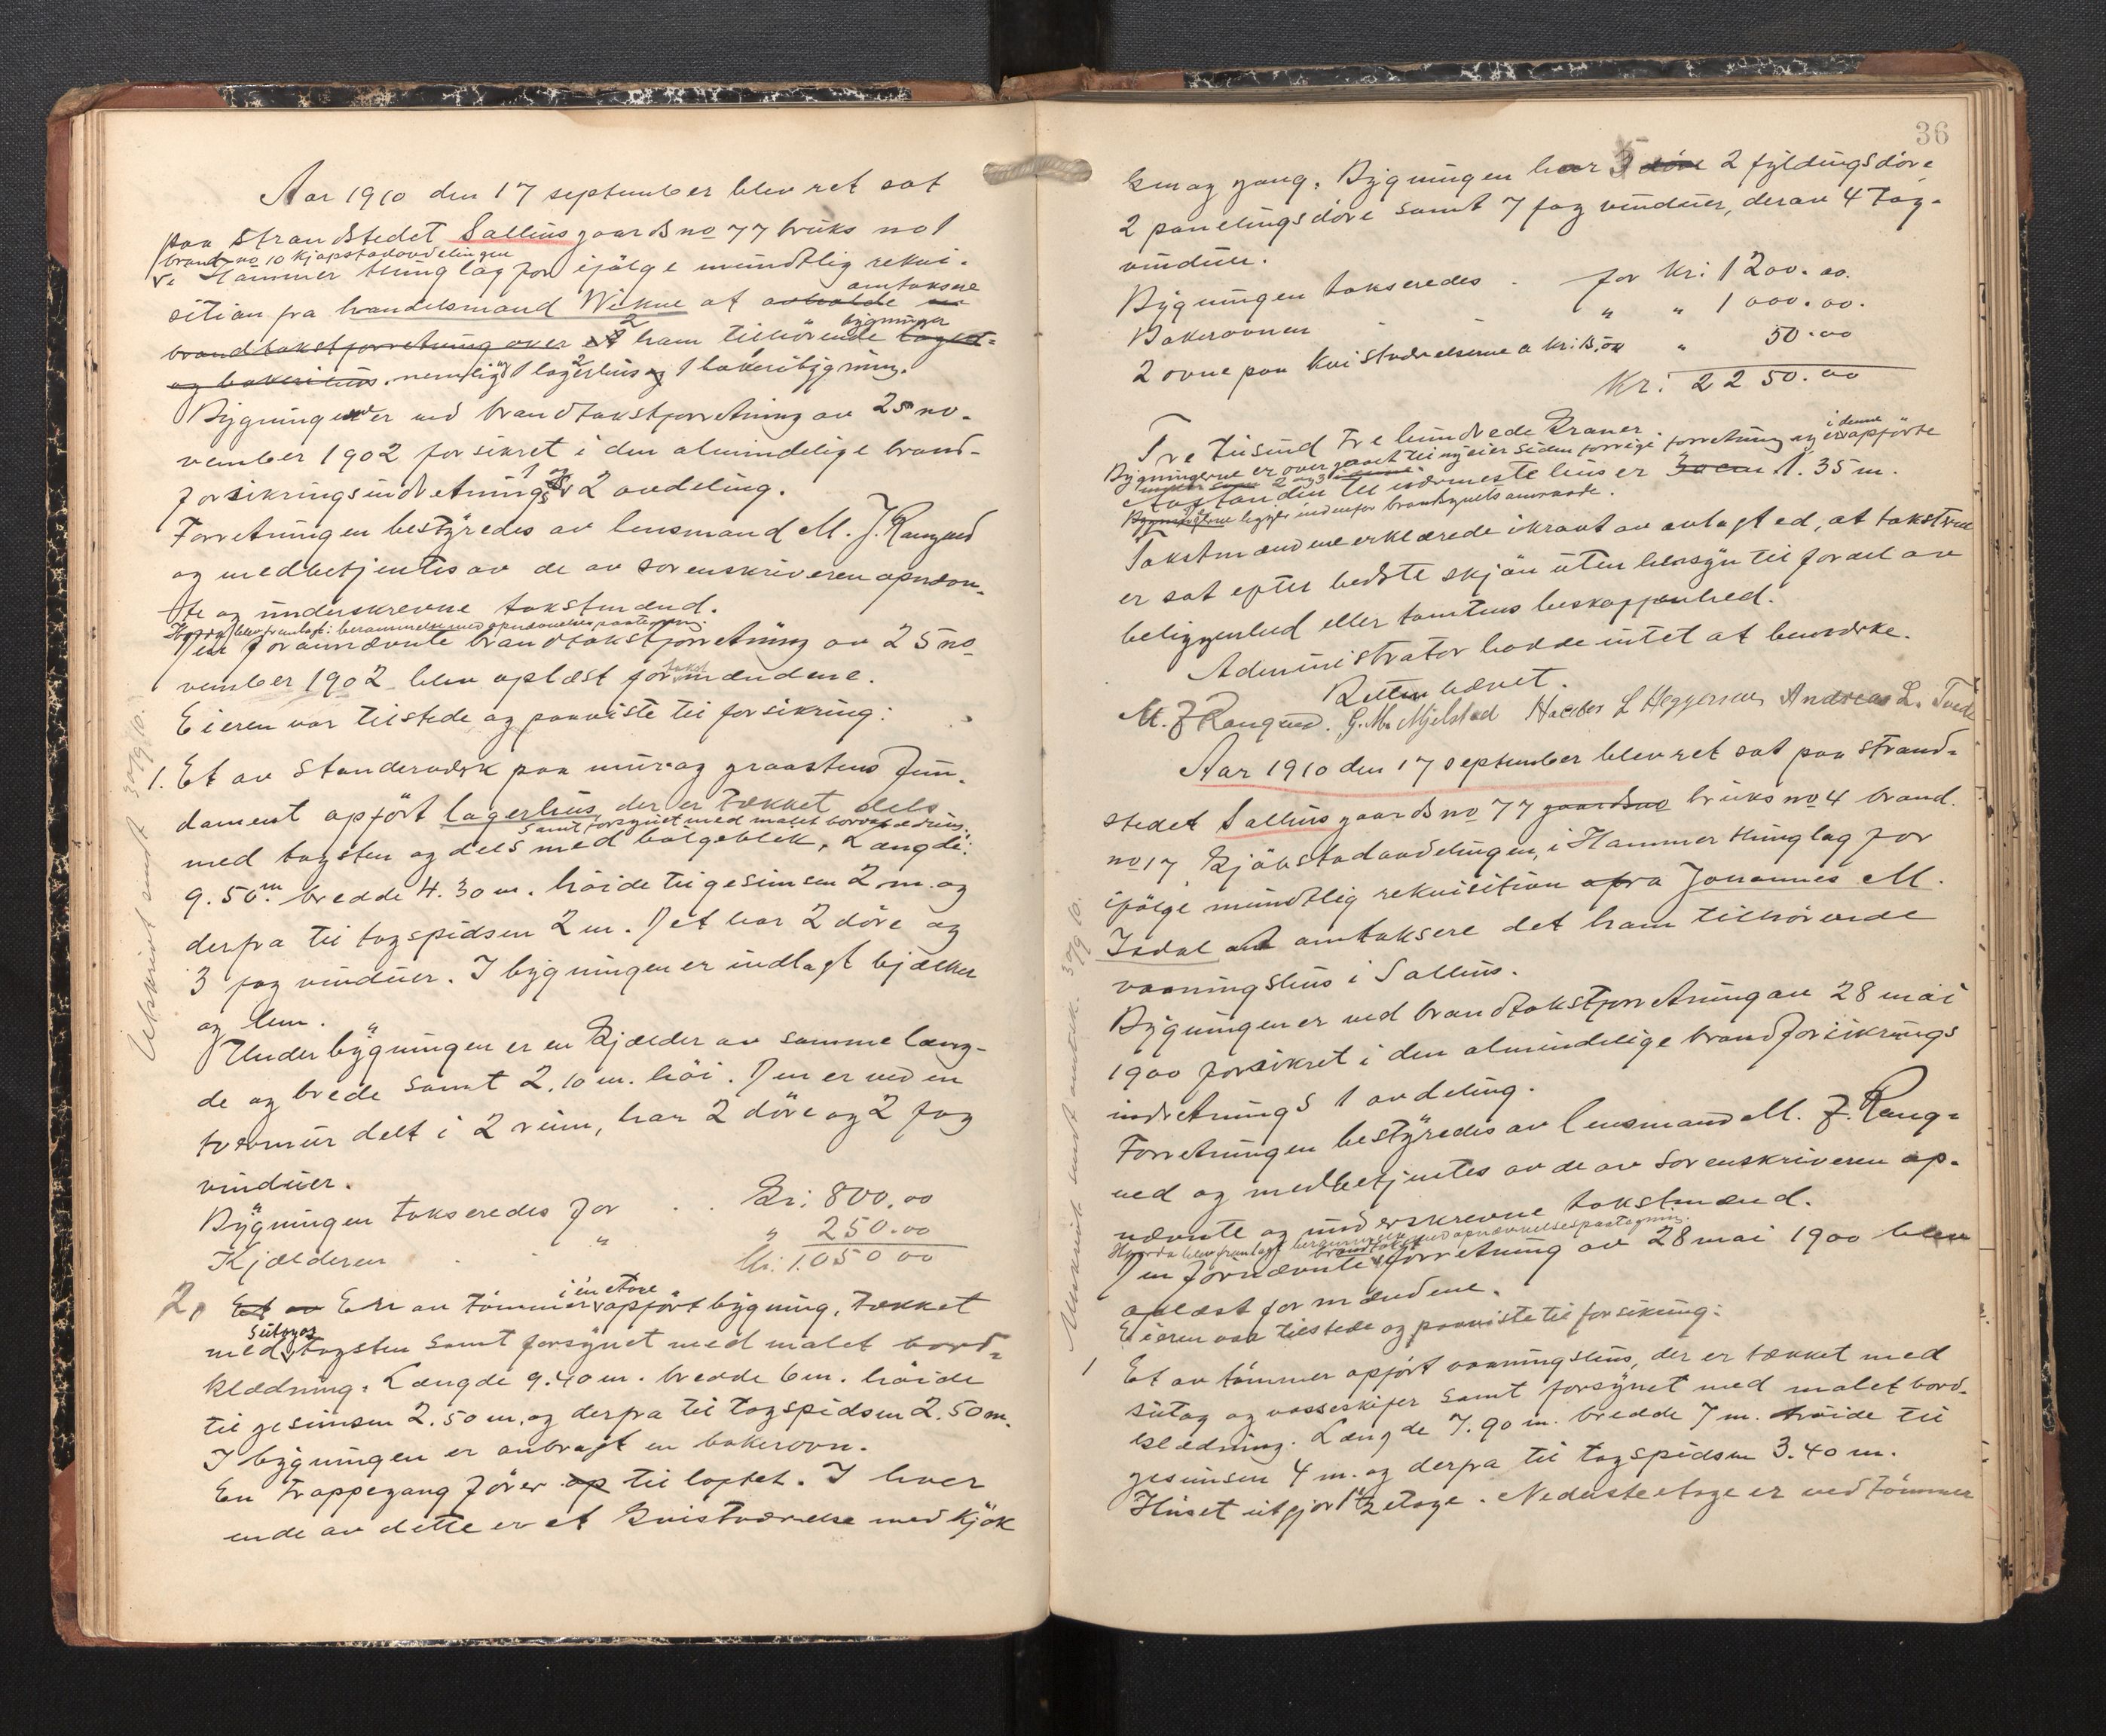 Aar 1910 den 17 september blev ret sat
paa strandstedet Salhus gaards no 77 bruks no 1
brand no 10 Kjøpstadavdelingen
i Hammer thinglag for ifølge mundtlig rekvi-
sition fra handelsmand Wikne at avholde en
omtaksere
brandtakstforretning over 2 ham tilhørende
bygninger
og bakerihus. nemlig 1 lagerhus og 1 bakeribygning.
Bygningerne er ved brandtakstforretning av 25 no-
vember 1902 forsikret i den almindelige brand-
forsikringsindretnings 1 og 2 avdeling.
Forretningen bestyredes av lensmand M. J. Rangned
og medbetjentes av de av sorenskriveren opnævn-
te og underskrevne takstmænd.
Hvorda blev fremlagt: berammelse med opnævnelsespaategning.
Den forannævnte brandtakstforretning av 25 no-
vember 1902 blev oplæst for takstmændene.
Eieren var tilstede og paaviste til forsikring:
1. Et av standerværk paa mur og graastens fun-
dament opført lagerhus, der er tækket dels
samt forsynet med malet bordklædning.
med tagsten og dels med bølgeblik, Længde:
9.50 m. bredde 4.30 m. høide til gesimsen 2 m. og
derfra til tagspidsen 2 m. Det har 2 døre og
3 fag vinduer. I bygningen er indlagt bjælker
og lem.
Under bygningen er en Kjælder av samme læng-
de og brede samt 2.10 m. høi. Den er ved en
tvermur delt i 2 rum, har 2 døre og 2 fag
vinduer.
Bygningen takseredes for . . Kr: 800.00
Kjælderen " " 250.00
Kr: 1.050 00
2, Et av En av tømmer i en etage opført bygning, tækket
med sutag og tagsten samt forsynet med malet bord-
klædning. Længde 9.40 m. bredde 6 m. høide
til gesimsen 2.50 m. og derfra til tagspidsen 2.50 m.
I bygningen er anbragt en bakerovn.
En trappegang fører op til loftet. I hver
ende av dette er et Kvistværelse med kjøk
Utskrevet sendt 30/9 10.
36
ken og gang. Bygningen har 3 døre 2 fyldingsdøre
2 panelingsdøre samt 7 fag vinduer, derav 4 tag-
vinduer.
Bygningen takseredes . for Kr: 1200.00.
Bakerovnen " " 1000.00.
2 ovne paa kvistværelserne a kr: 25,00 " 50.00
Kr: 2250.00
Tre tusind tre hundrede Kroner.
Bygningerne er overgaaet til ny eier siden forrige forretning og er i denne opførte
under som 2 og 3
Avstanden til nærmeste hus er 30 cm 1.35 m.
Bygningerne ligger indenfor brandsynets omraade.
Takstmændene erklærede i kraft av avlagt ed, at taksterne
er sat efter bedste skjøn uten hensyn til fordel av
beliggenhed eller tomtens beskaffenhed.
Administrator hadde intet at bemærke.
Retten hævet.
M. J Rangned. G. M. Mjelstad L Heggernes Andreas L. Tvedt
Aar 1910 den 17 september blev ret sat paa strand-
stedet Salhus gaards no 77 gaardsno bruks no 4 brand.
no 17 Kjøbstadavdelingen, i Hammer thinglag for
ifølge mundtlig rekvisition afra Johannes M.
Isdal at omtaksere det ham tilhørende
vaaningshus i Salhus.
Bygningen er ved brandtakstforretning av 28 mai
1900 forsikret i den almindelige brandforsikrings
indretnings 1 avdeling.
Forretningen bestyredes av lensmand M. J. Rang-
ned og medbetjentes av de av sorenskriveren op-
nævnte og underskrevne takstmænd.
Hvorda blev fremlagt berammelse med opnævnelsespaategning.
Den førnævnte brandtakstforretning av 28 mai 1900 blev
oplæst for mændene.
Eieren var tilstede og paaviste til forsikring:
1 Et av tømmer opført vaaningshus, der er tækket med
sutag og vosseskifer samt forsynet med malet bord-
klædning. Længde 7.90 m. bredde 7 m. høide til
gesimsen 4 m. og derfra til tagspidsen 3.40 m.
Huset utgjør 1 1/2 etage. Nederste etage er ved tømmer
Utskrevet sendt amtsk. 30/9 10.